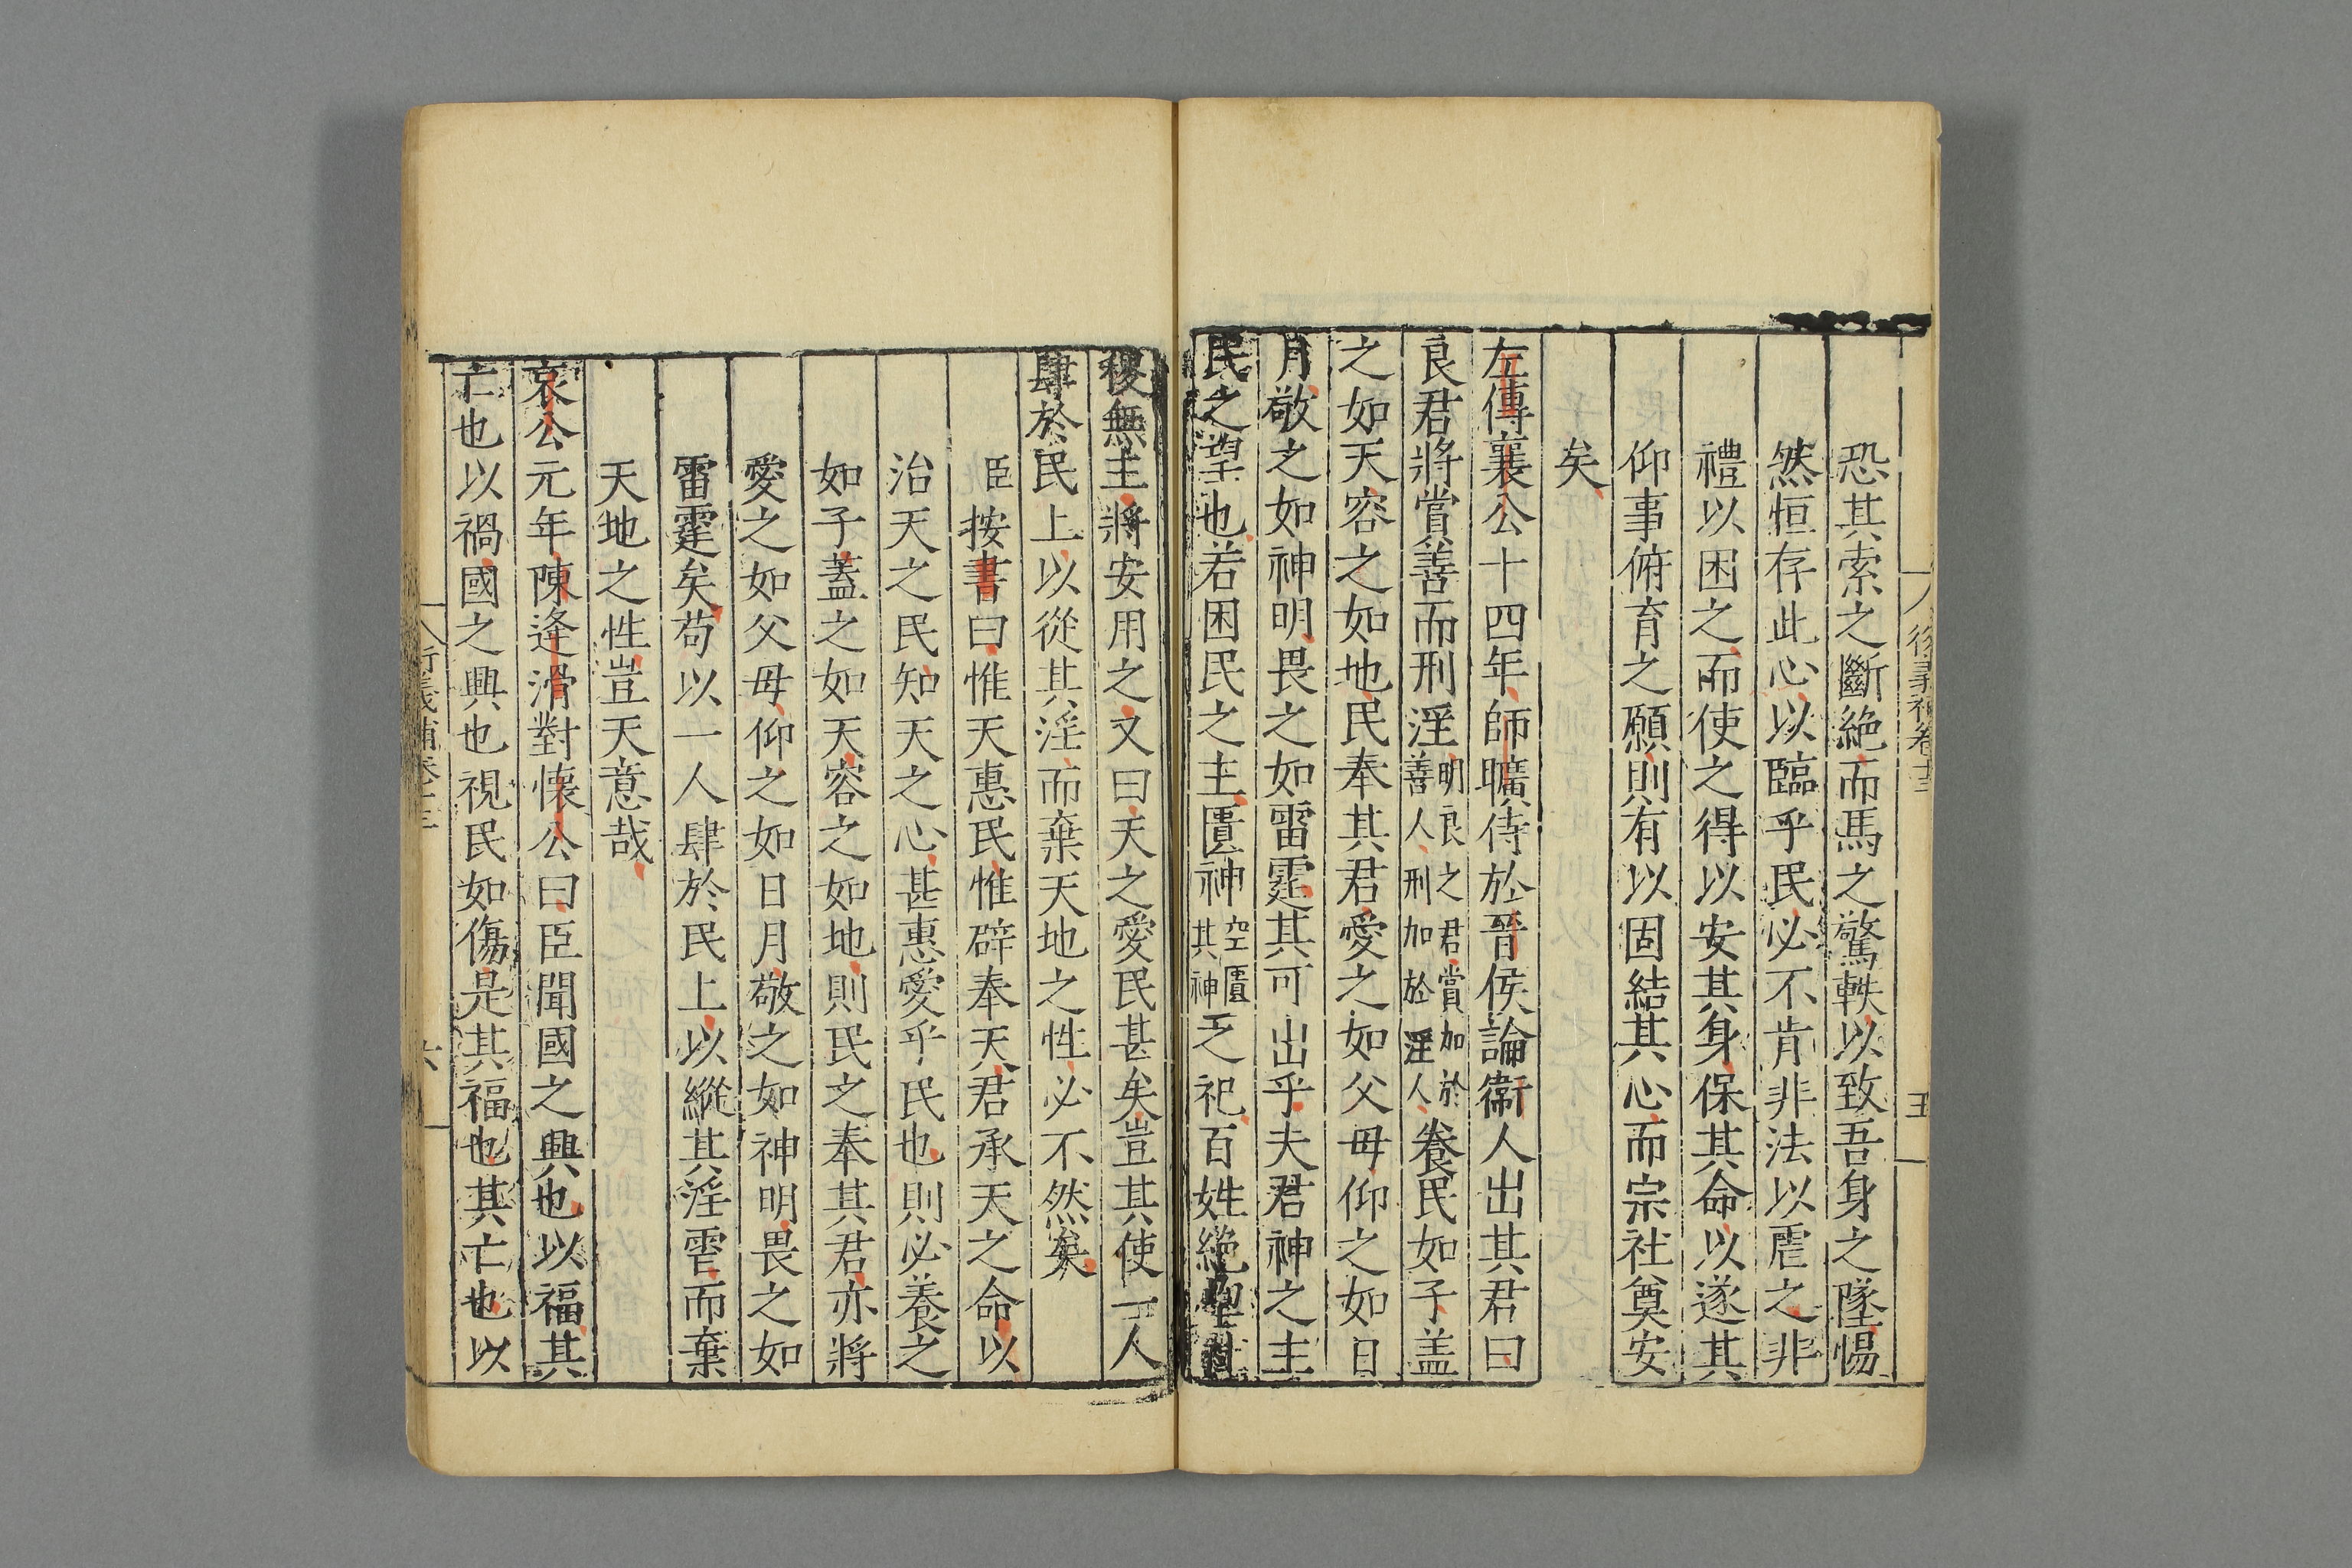 恐其索之斷絶而馬之驚軼以致吾身之墜惕
然恒存此心以臨乎民必不肯非法以虐之非
禮以困之而使之得以安其身保其命以遂其
仰事俯育之願則有以固結其心而宗社奠安
矣
左傳襄公十四年師曠侍於晉侯論衞人出其君曰
良君將賞善而刑淫明良之君賞加於善人刑加於淫人養民如子盖
之如天容之如地民奉其君愛之如父母仰之如日
月敬之如神明畏之如雷霆其可出乎夫君神之主
民之望也若困民之主匱神空匱其神乏祀百姓絶望社
稷無主將安用之又曰天之愛民甚矣豈其使一人
肆於民上以從其淫而棄天地之性必不然矣
臣按書曰惟天惠民惟辟奉天君承天之命以
治天之民知天之心甚惠愛乎民也則必養之
如子蓋之如天容之如地則民之奉其君亦將
愛之如父母仰之如日月敬之如神明畏之如
雷霆矣苟以一人肆於民上以縱其淫雪而棄
天地之性豈天意哉
哀公元年陳逢滑對懐公曰臣聞國之興也以福其
亡也以禍國之興也視民如傷是其福也其亡也以
六